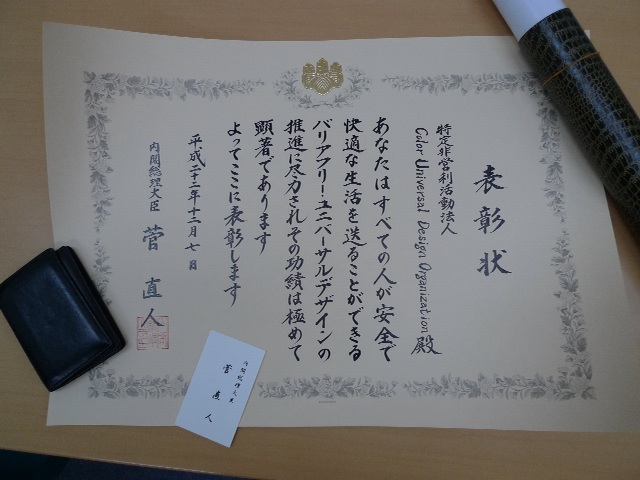 表彰状
特定非営利活動法人
Color Universal Design Organization 殿
あなたはすべての人が安全で
快適な生活を送ることができる
バリアフリー・ユニバーサルデザインの
推進に尽力されその功績は極めて
顕著であります
よってここに表彰します
平成二十二年十二月七日
内閣総理大臣 菅直人
内閣総理大臣
菅直人